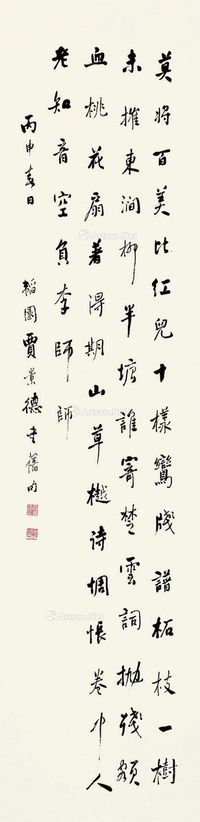 莫將百美比紅兒十樣鸞牋譜柘枝一樹
未摧東澗柳半塘誰寄楚雲詞拋殘額
血桃花扇著得期山草樾詩惆悵卷中人
老知音空負李師師
丙申春日 韜園賈景德書舊句